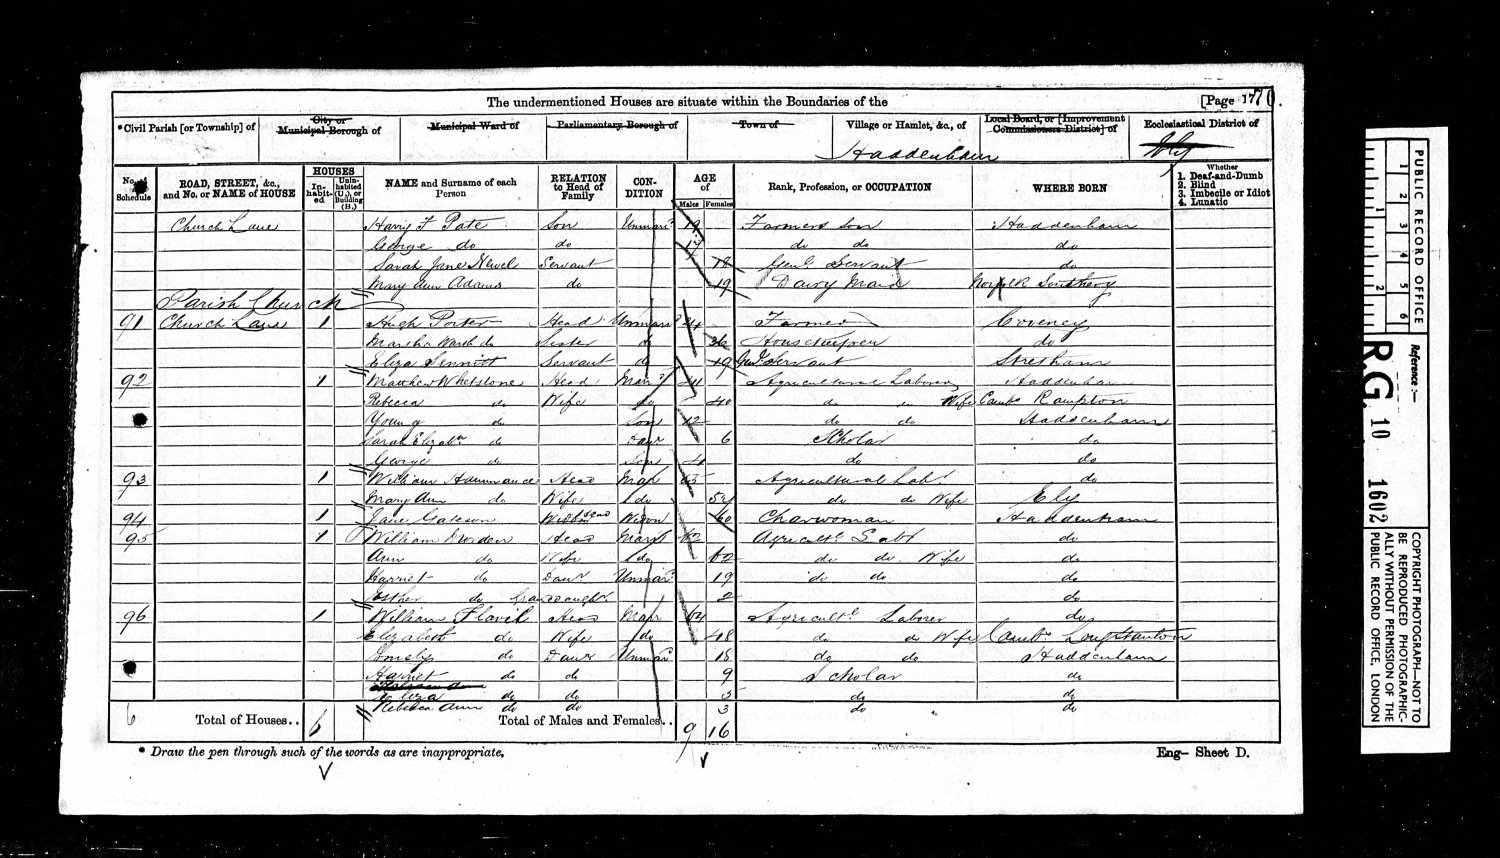 The undermentioned Houses are situate within the Boundaries of the [Page 17 70.
* Civil Parish [or Township] of City or Municipal Borough of Municipal Ward of Parliamentary Borough of Town of Village or Hamlet, &c., of Local Board, or [Improvement Commissioners District] of Ecclesiastical District of
Haddenham Ely
No. of Schedule ROAD, STREET, &c., and No. or NAME of HOUSE HOUSES Inhabited Uninhabited (U.), or Building (B.) NAME and Surname of each Person RELATION to Head of Family CONDITION AGE of Males Females Rank, Profession, or OCCUPATION WHERE BORN Whether 1. Deaf-and-Dumb 2. Blind 3. Imbecile or Idiot 4. Lunatic
Church Lane Harry F Pate Son Unmarr 19 Farmers Son Haddenham
George do do 17 do do do
Sarah Jane Newel Servant 18 Genl. Servant do
Mary Ann Adams do 19 Dairy Maid Norfolk Southery
Parish Church
91 Church Lane 1 Hugh Porter Head Unmarr 24 Farmer Coveney
Martha Warth do Sister do 36 Housekeeper do
Eliza Sennitt Servant do 19 Genl Servant Stretham
92 1 Matthew Whetstone Head Marr 41 Agricultural Laborer Haddenham
Rebecca do Wife do 40 do do Wife Cambs Rampton
Young do Son 12 do do Haddenham
Sarah Elizabth do Daur 6 Scholar do
George do Son 4 do do
93 1 William Head Mar Agricultural Lab. do
Mary Ann do Wife do 52 do do Wife Ely
94 1 Jane Head Widow 60 Charwoman Haddenham
95 1 William Head Marr 62 Agricultl Labr do
Ann do Wife do 62 do do Wife do
Harriet do Daur Unmar 19 do do do
Esther do Granddaughr 2 do
96 1 William Flavil Head Marr 64 Agricultl Laborer do
Elizabeth do Wife do 48 do do Wife Cambs Longstanton
do Daur Unmar 18 do do Haddenham
Harriet do do 9 Scholar do
Eliza do do 5 do do
Rebecca Ann do do 3 do do
6 Total of Houses.. 6 Total of Males and Females.. 9 16
* Draw the pen through such of the words as are inappropriate. Eng— Sheet D.
PUBLIC RECORD OFFICE
1 2 3 4 5 6
1 2
Reference:—
RG 10 1602
COPYRIGHT PHOTOGRAPH—NOT TO BE REPRODUCED PHOTOGRAPHICALLY WITHOUT PERMISSION OF THE PUBLIC RECORD OFFICE, LONDON